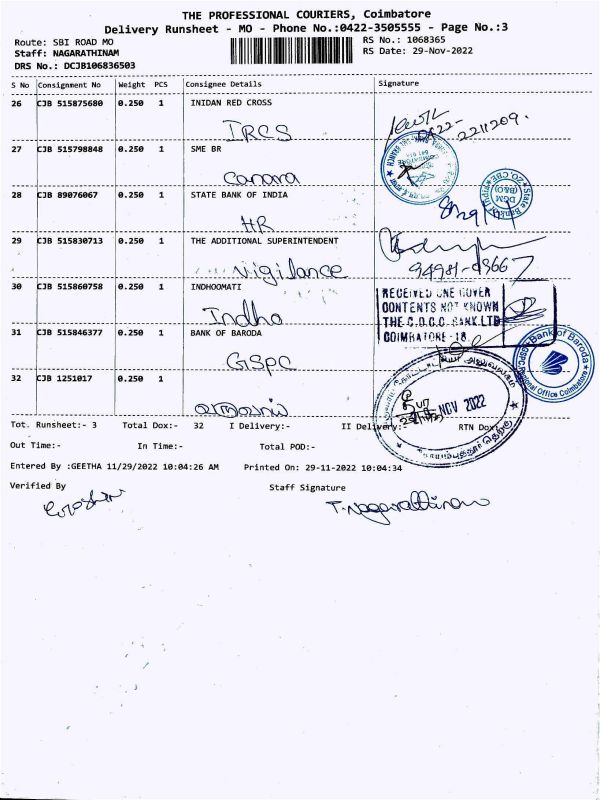 THE PROFESSIONAL COURIERS, Coimbatore
Delivery Runsheet - MO - Phone No.:0422-3505555 - Page No.:3
Route: SBI ROAD MO
Staff: NAGARATHINAM
DRS No.: DCJB106836503
RS No.: 1068365
RS Date: 29-Nov-2022
S No Consignment No Weight PCS Consignee Details Signature
26 CJB 515875680 0.250 1 INIDAN RED CROSS
IRCS
2211209.
27 CJB 515798848 0.250 1 SME BR
Canara
28 CJB 89076067 0.250 1 STATE BANK OF INDIA
HR
State Bank of India
DGM
(B&O)
ZO, CBE
29 CJB 515830713 0.250 1 THE ADDITIONAL SUPERINTENDENT
Vigilance
30 CJB 515860758 0.250 1 INDHOOMATI
Indho
RECEIVED ONE COVER
CONTENTS NOT KNOWN
THE C.D.C.C. BANK LTD
COIMBATORE - 18
31 CJB 515846377 0.250 1 BANK OF BARODA
GSPC
Bank of Baroda
Regional Office Coimbatore
32 CJB 1251017 0.250 1
NOV 2022
Tot. Runsheet:- 3 Total Dox:- 32 I Delivery:- II Delivery:- RTN Dox
Out Time:- In Time:- Total POD:-
Entered By :GEETHA 11/29/2022 10:04:26 AM Printed On: 29-11-2022 10:04:34
Verified By Staff Signature
T. Nagarathinam